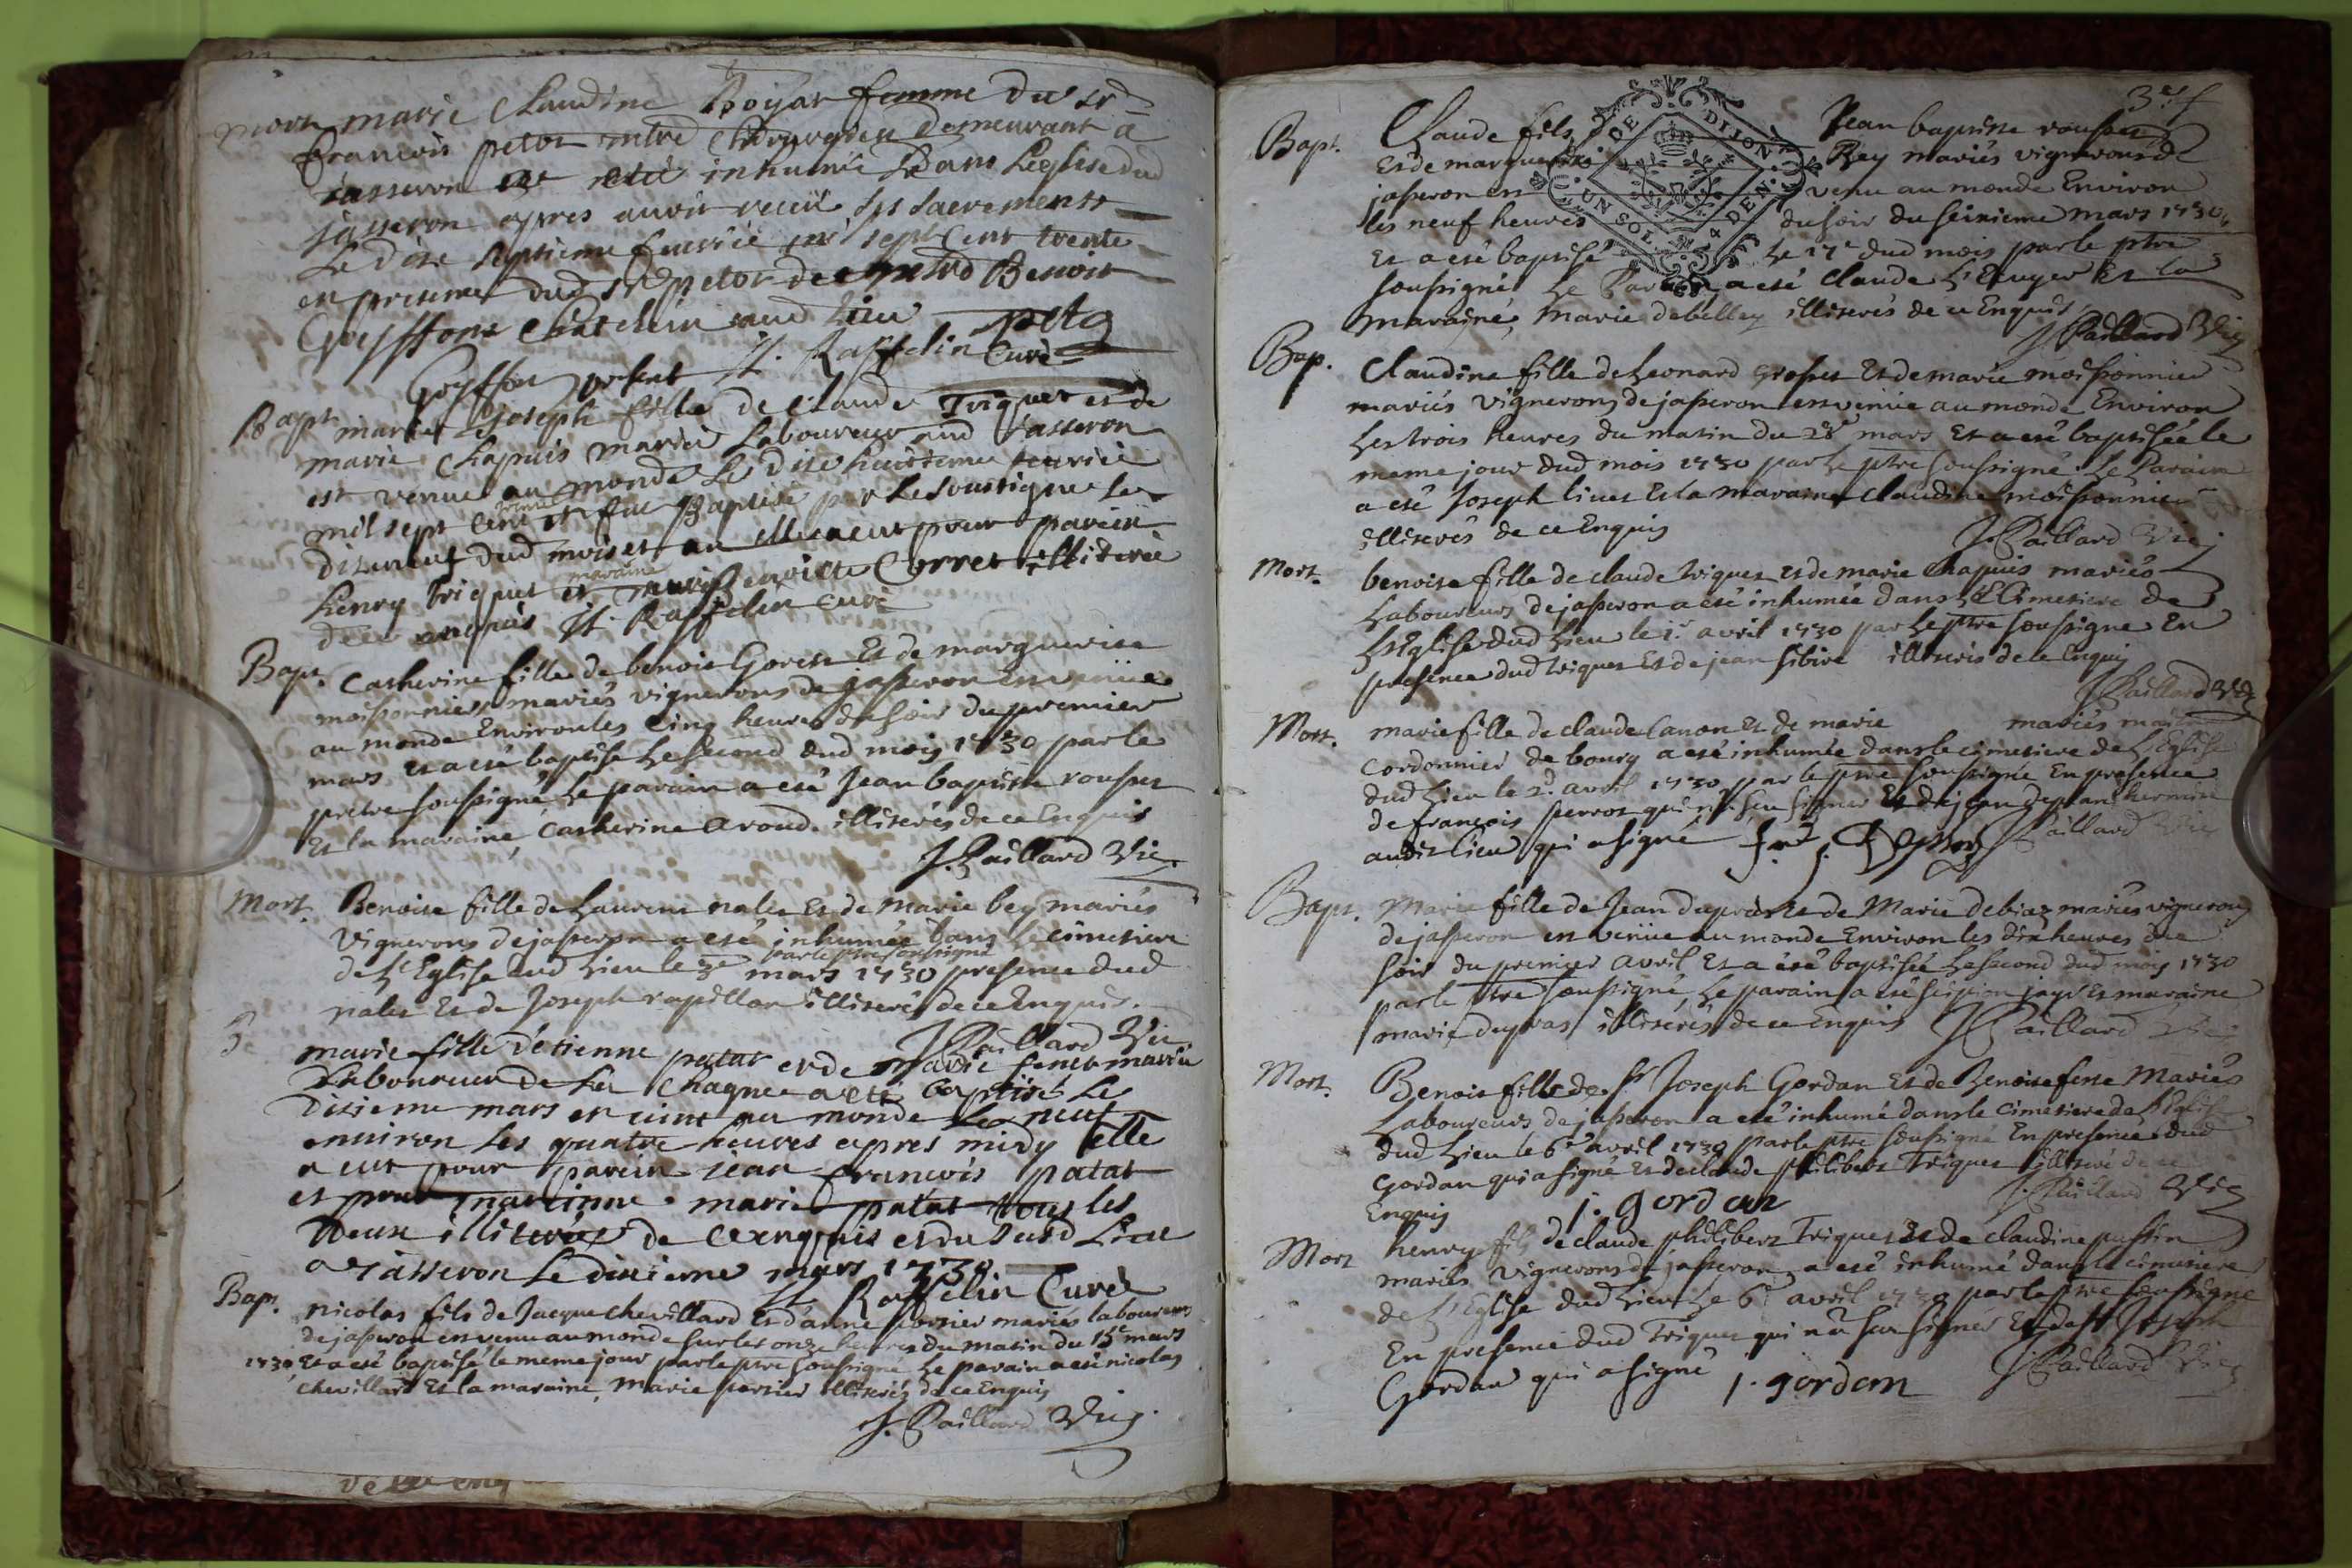 mort marie Claudine Boyar femme du sr
francois petot mtre Chirurgien demeurant a
jasseron a eté inhumé dans L'eglise dud
jasseron apres avoir receü les sacrements
Le dixe septieme fuvrié mil sept Cent trente
en presence dud sr petot de mtre Benoit
Goyffon Chatelain aud Lieu peto
Goyffon present Raffelin Curé
Bapt marie Joseph fille de Claude Triquet et de
marie Chapuis mariéi Laboureur aud jasseron
est venue au monde Le dixe huitieme feuvrié
mil sept Cent trente et fut Baptisé par Le soussigné Le
dixneuf dud mois et an elle a eut pour parein
henry triquet et maraine Corret illiteré
de ce enquis Raffelin curé
Bapt. Catherine fille de benoit Goret Et de marguerite
moissonnier mariés vignerons de jasseron Est venüe
au monde Environ les Cinq heures du soir du premier
mars Et a eté baptisé le second dud mois 1730 par le
pretre soussigné le parain a eté Jean baptiste rousset
Et la maraine Catherine Aroud illiterés de ce Enquis
J. Paillard Vic.
Mort. Benoite fille de Laurent nalet Et de Marie bey mariés
vignerons de jasseron a eté inhumée dans le cimetiere
de L'Eglise dud Lieu le 3e mars 1730 par le ptre soussigné presence dud
nalet Et de Joseph rapillon illiterés de ce Enquis.
J. Paillard Vic
marie fille d'etienne patat et de marie mariéi
Laboureur de La Chagnee a eté baptisé Le
dixieme mars et vint au monde Le neuf
environ Les quatre heures apres midy elle
a eut pour parein jean francois patat
et pour mareinne marie patat tous les
deux illiterés de Ce enquis et du susd Lieu
a jasseron Le dixieme mars 1730
Raffelin Curé
Bap. nicolas fils de Jacque chevillard Et d'anne porsier mariés laboureurs
de jasseron est venu au monde sur les onze heures du matin du 15e mars
1730 Et a eté baptisé le meme jour par le ptre soussigné le parain a eté nicolas
chevillard Et la maraine Marie porsier illiterés de ce Enquis
J. Paillard Vic.
3e f
G. DE DIJON
UN SOL 4 DEN.
Bapt. Claude fils Jean baptiste rousset
Et de marguerite Rey mariés vignerons de
jasseron est venu au monde Environ
les neuf heures du soir du seizieme mars 1730
Et a eté baptisé le 17e dud mois par le ptre
soussigné Le Parain a eté Claude L'Ecuyer Et la
maraine Marie debelley illiterés de ce Enquis
J. Paillard Vic
Bap. Claudine fille de Leonard Grosset Et de marie moissonnier
mariés Vignerons de jasseron est venüe au monde Environ
les trois heures du matin du 28e mars Et a eté baptisée le
meme jour dud mois 1730 par le ptre soussigné Le Parain
a eté Joseph liuet Et la maraine Claudine moissonnier
illiterés de ce Enquis
J. Paillard Vic
Mort. benoite fille de claude triquet et de marie Chapuis mariés
Laboureurs de jasseron a eté inhumée dans Le Cimetiere de
L'Eglise dud Lieu le 1r avril 1730 par le ptre soussigné En
presence dud triquet Et de jean sibire illiterés de ce Enquis
J. Paillard Vic
Mort. marie fille de claude Canon Et de marie mariés
Cordonnier de bourg a eté inhumée dans le cimetiere de L'Eglise
dud Lieu le 2d. avril 1730 par le ptre soussigné En presence
de francois perrot qui n'a seu signer Et de jean hermite
audit lieu qui a signé J. Paillard Vic
Bapt. Marie fille de Jean dupras Et de Marie debiaz mariés vignerons
de jasseron est venüe au monde Environ les dix heures du
soir du premier avril Et a été baptisée le second dud mois 1730
par le ptre soussigné, Le parain a eté Et maraine
marie dupras illiterés de ce Enquis J. Paillard Vic
Mort. Benoit fils de Sr Joseph Gordan Et de Benoite ferre Mariés
Laboureurs de jasseron a eté inhumé dans le Cimetiere de L'Eglise
dud Lieu le 6e avril 1730 par le ptre soussigné En presence dud
Gordan qui a signé Et de claude philibert Triquet illiteré de ce
Enquis j. gordan J. Paillard Vic
Mort henry fils de claude philibert Triquet Et de claudine putfin
mariés Vignerons de jasseron a eté inhumé dans le cimetiere
de L'Eglise dud Lieu Le 6e avril 1730 par le ptre soussigné
En presence dud Triquet qui n'a seu signer Et de Sr Joseph
Gordan qui a signé j. gordan J. Paillard Vic